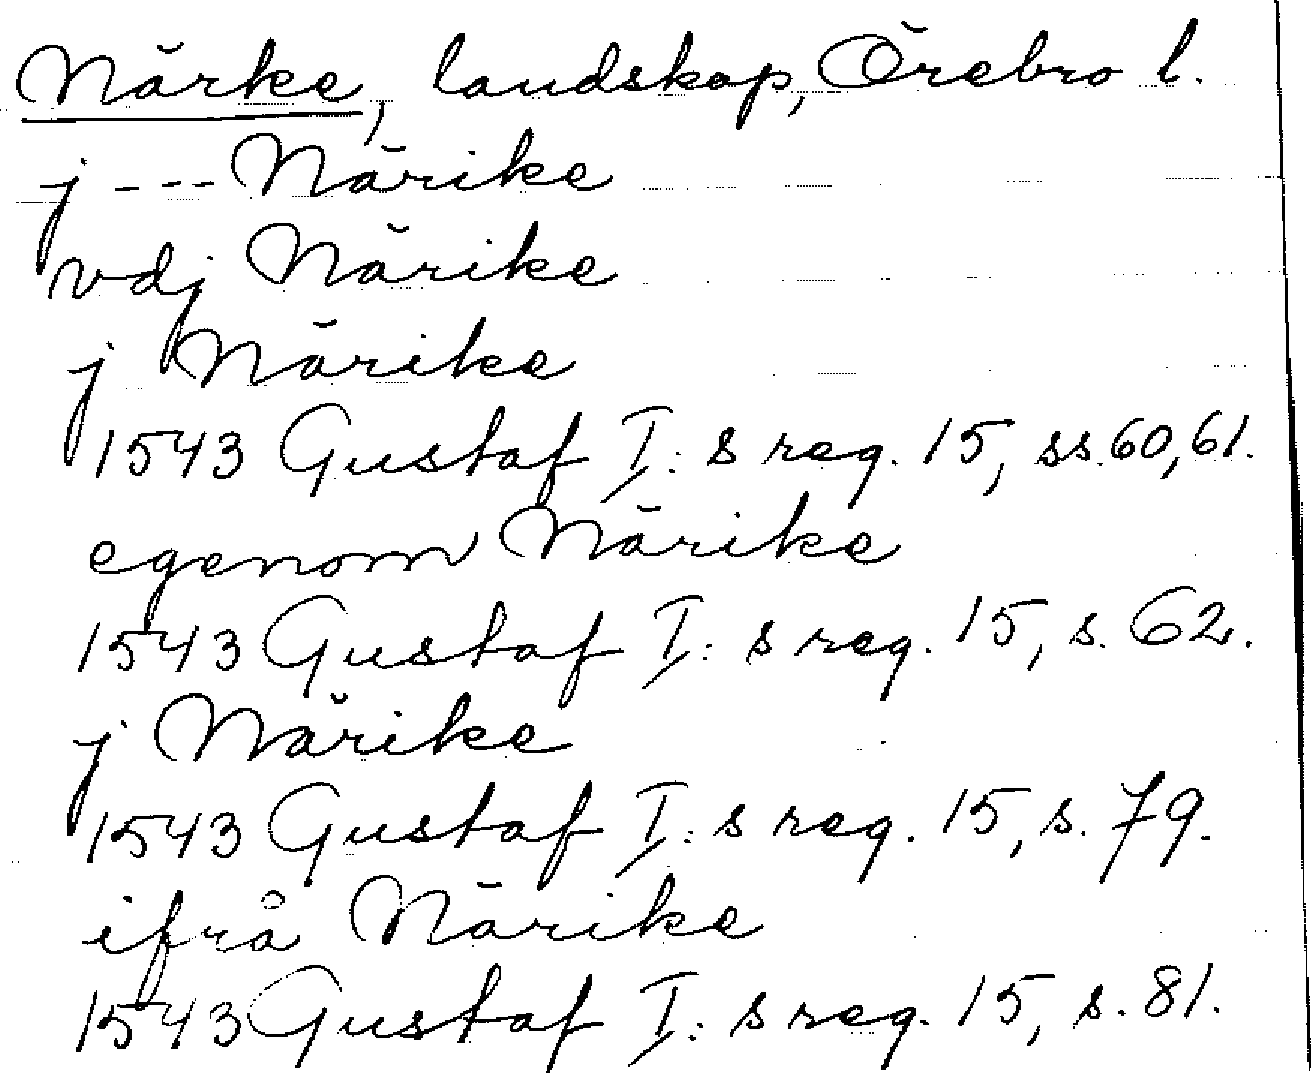 Närke, landskap, Örebro l.
j --- Närike
vdj Närike
j Närike
1543 Gustaf I:s reg. 15, ss. 60, 61.
egenom Närike
1543 Gustaf I:s reg. 15, s. 62.
j Närike
1543 Gustaf I:s reg. 15, s. 79.
ifrå Närike
1543 Gustaf I:s reg. 15, s. 81.